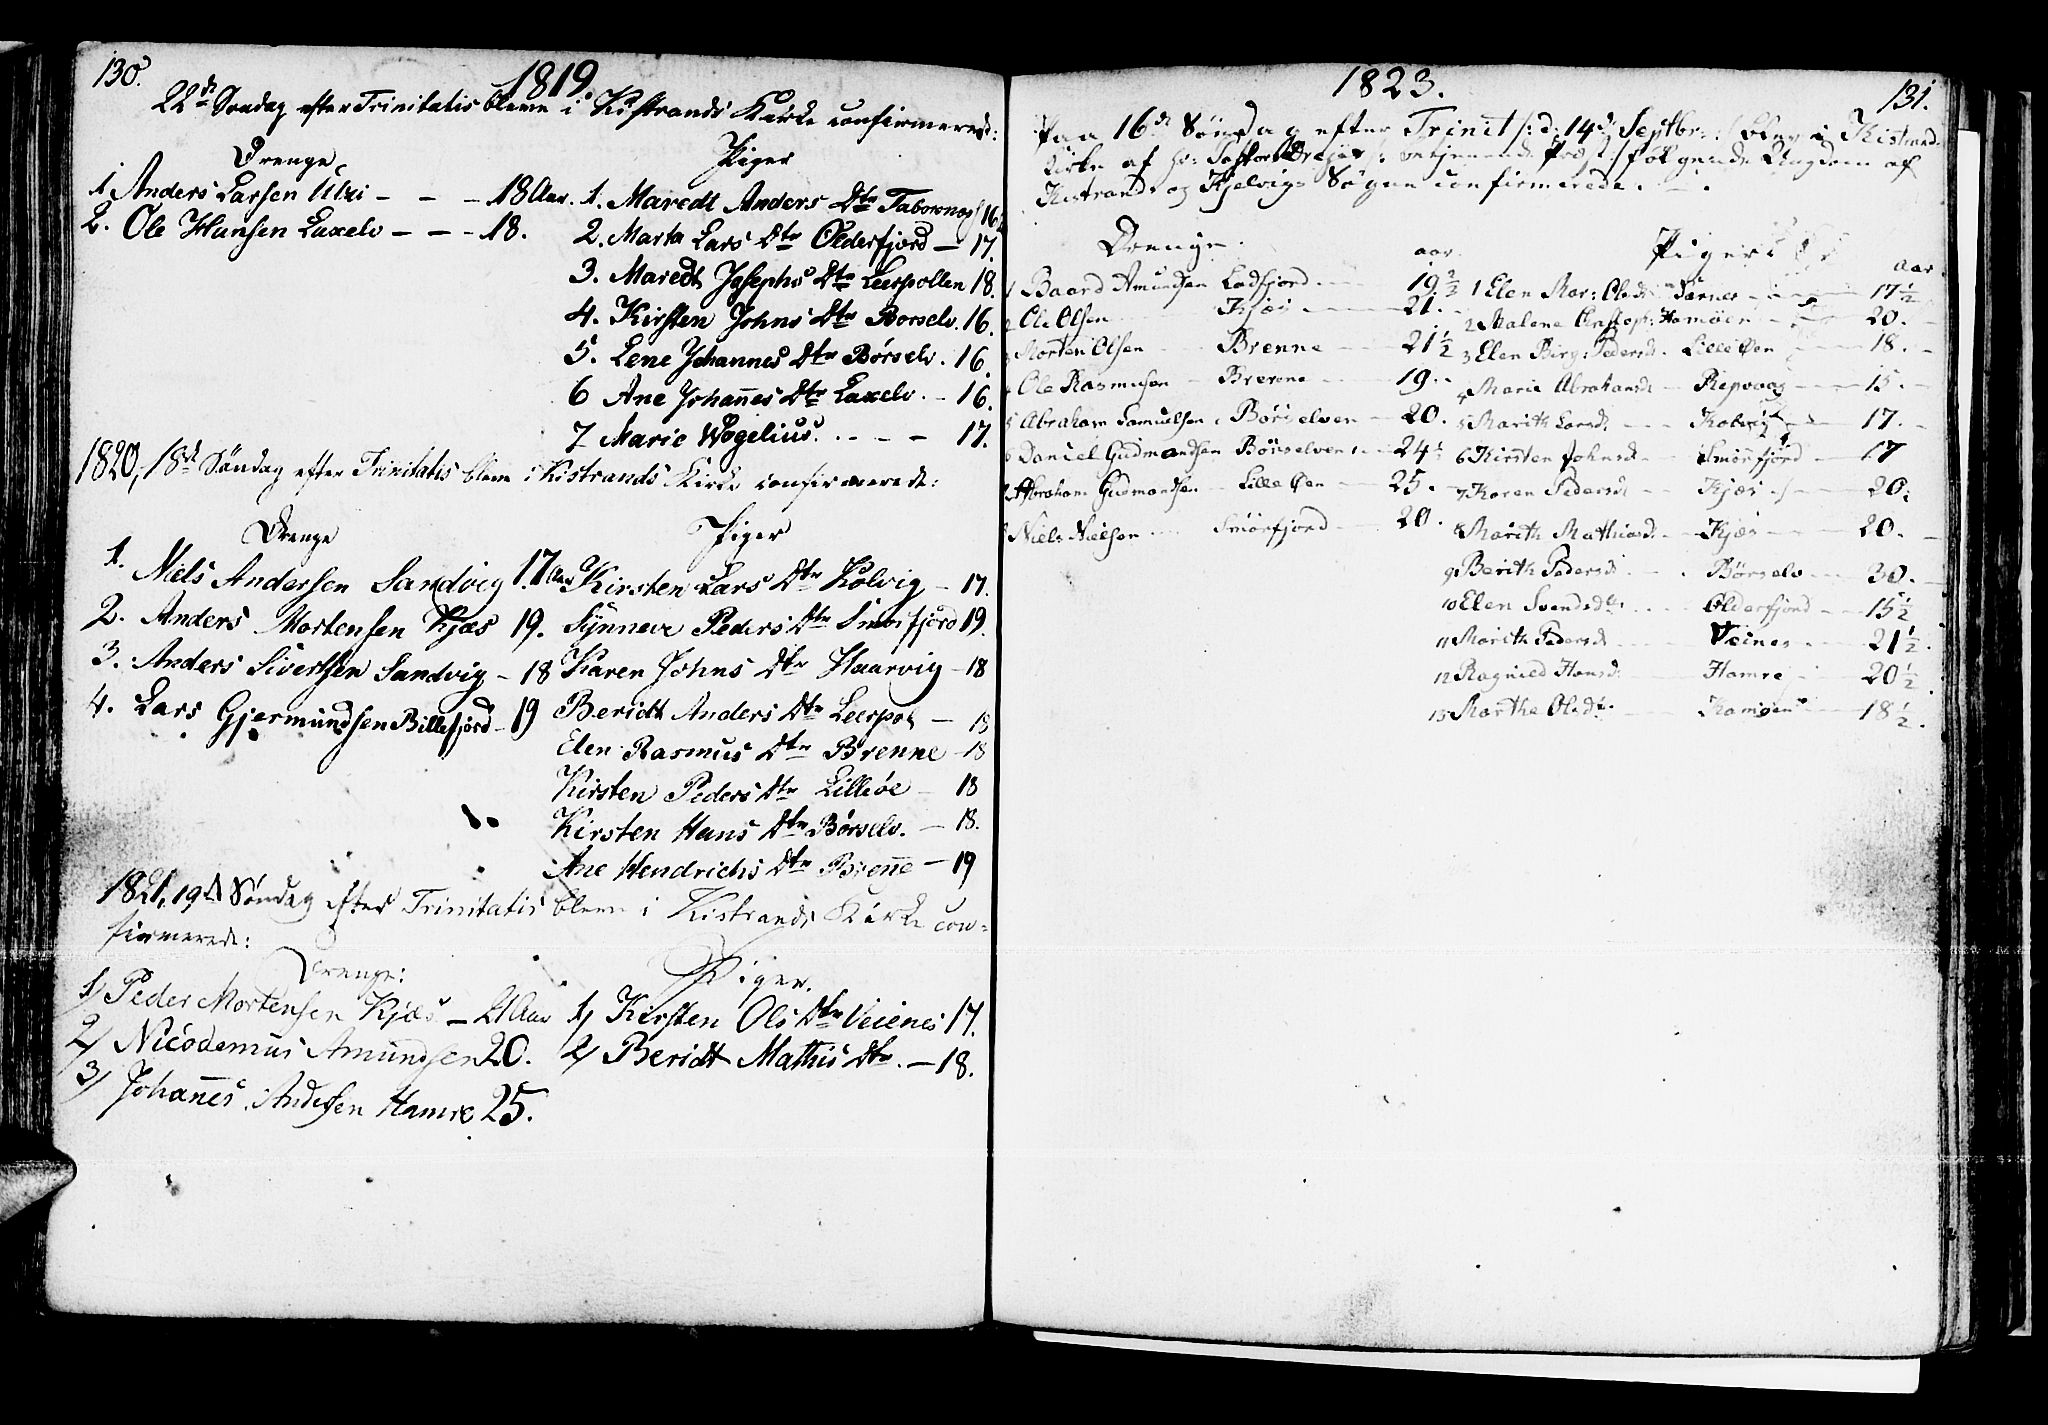 130.
1819.
22de Søndag efter Trinitatis bleve i Kistrands Kirke confirmerede:
Drenge
1 Anders Larsen - - - 18 Aar.
2. Ole Hansen Laxelv - - - 18.
Piger
1. Maredt Anders Dtr 16
2. Marta Lars Dtr Olderfjord - 17.
3. Maredt Josephs Dtr Leerpollen 18.
4. Kirsten Johns Dtr Borselv. 16.
5. Lene Johannes Dtr Børselv. 16.
6 Ane Johanes Dtr Laxelv. - 16.
7 Marie Wogelius. . - - - 17.
1820, 18de Søndag efter Trinitatis bleve i Kistrands Kirke confirmerede:
Drenge
1. Niels Andersen Sandvig 17 Aar
2. Anders Mortensen Kjæs 19.
3. Anders Sivertsen Sandvig - 18
4. Lars Gjermundsen Billefjord - 19
Piger
Kirsten Lars Dtr Kolvig - 17.
Synneve Peders Dtr Smørfjord 19.
Karen Johns Dtr Haarvig - 18
Beridt Anders Dtr Leerpol - 18
Elen Rasmus Dtr Brenne - 18
Kirsten Peders Dtr Lilleøe - 18
Kirsten Hans Dtr Børselv. - 18.
Ane Hendrichs Dtr Brene - 19
1821, 19de Søndag efter Trinitatis bleve i Kistrands Kirke con=
firmerede:
Drenge:
1/ Peder Mortensen Kjæs - 21 Aar
2/ Nicodemus Amundsen 20.
3/ Johanes Andersen Hamre 25.
Piger.
1/ Kirsten Ols Dtr Veienes 17.
2/ Beridt Mathis Dtr. - 18.
131.
1823.
Paa 16de Søndag efter Trinit /: d: 14de Septbr: :/ blev i Kistrand
Kirke af Hr: Pastor /: Præst :/ følgende Ungdom af
Kistrands og Kjelvigs Sogne confirmerede.
Drenge. aar
1 Baard Amundsen Ladfjord 19
2 Ole Olsen Kjæs 21.
3 Morten Olsen Brenne 21 1/2
4 Ole Rasmusen Brenne 19.
5 Abraham Samuelsen Børselven 20.
6 Daniel Gudmandsen Børselven 24
7 Abraham Gudmandsen Lille Øen 25.
8 Niels Nielsen Smørfjord 20.
Piger aar
1 Elen Mar: Olsdr 17 1/2
2 Malene Christoph: 20.
3 Elen Birg: Pedersd. Lille Øen 18.
4 Marie Abrahamsd Repvaag 15.
5 Marith Larsd. 17.
6 Kirsten Johnsd Smørfjord 17
7 Karen Pedersd Kjæs 20.
8 Marith Mathiasd. Kjæs 20.
9 Berith Pedersd Børselv 30.
10 Elen Svendsdtr Olderfjord 15 1/2
11 Marith Pedersd Veines 21 1/2.
12 Ragnild Hansd. Hamre 20 1/2
13 Marthe Olsdtr Kamøen 18 1/2.